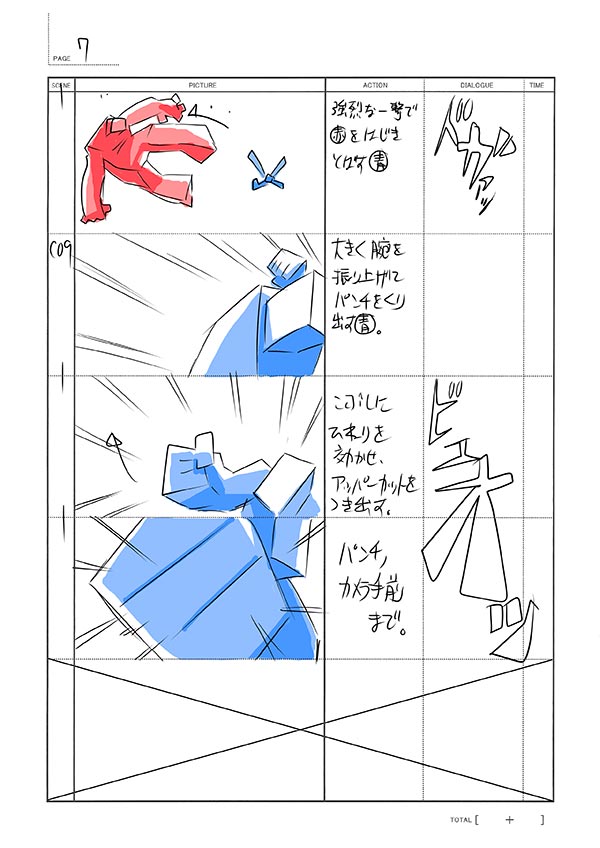 PAGE 7
SCENE PICTURE ACTION DIALOGUE TIME
強烈な一撃で
赤をはじき
とばす青
バガァッ
C09
大きく腕を
振り上げて
パンチをくり
出す青。
こぶしに
ひねりを
効かせ、
アッパーカットを
つき出す。
ビュオッ
パンチ、
カメラ手前
まで。
TOTAL [ + ]